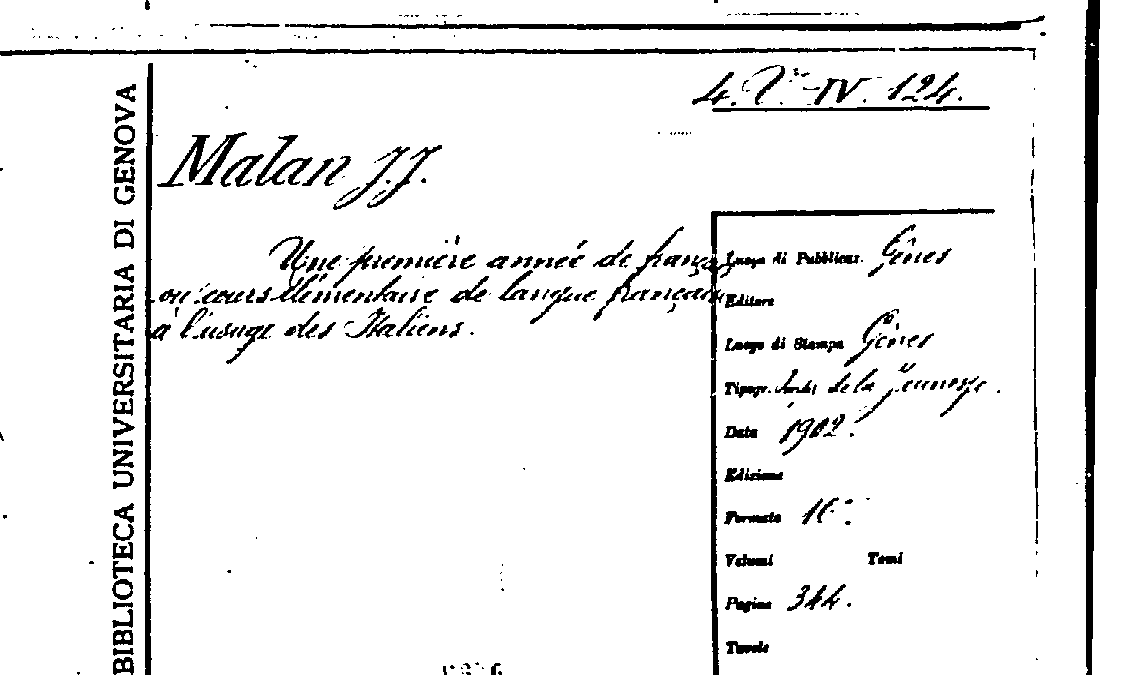 BIBLIOTECA UNIVERSITARIA DI GENOVA
4. V. IV. 124.
Malan J. J.
Une première année de français
ou cours élémentaire de langue française
à l'usage des Italiens.
Luogo di Pubblicaz. Gênes
Editore
Luogo di Stampa Gênes
Tipogr. de la Jeunesse.
Data 1902.
Edizione
Formato 16°.
Volumi Tomi
Pagine 344.
Tavole